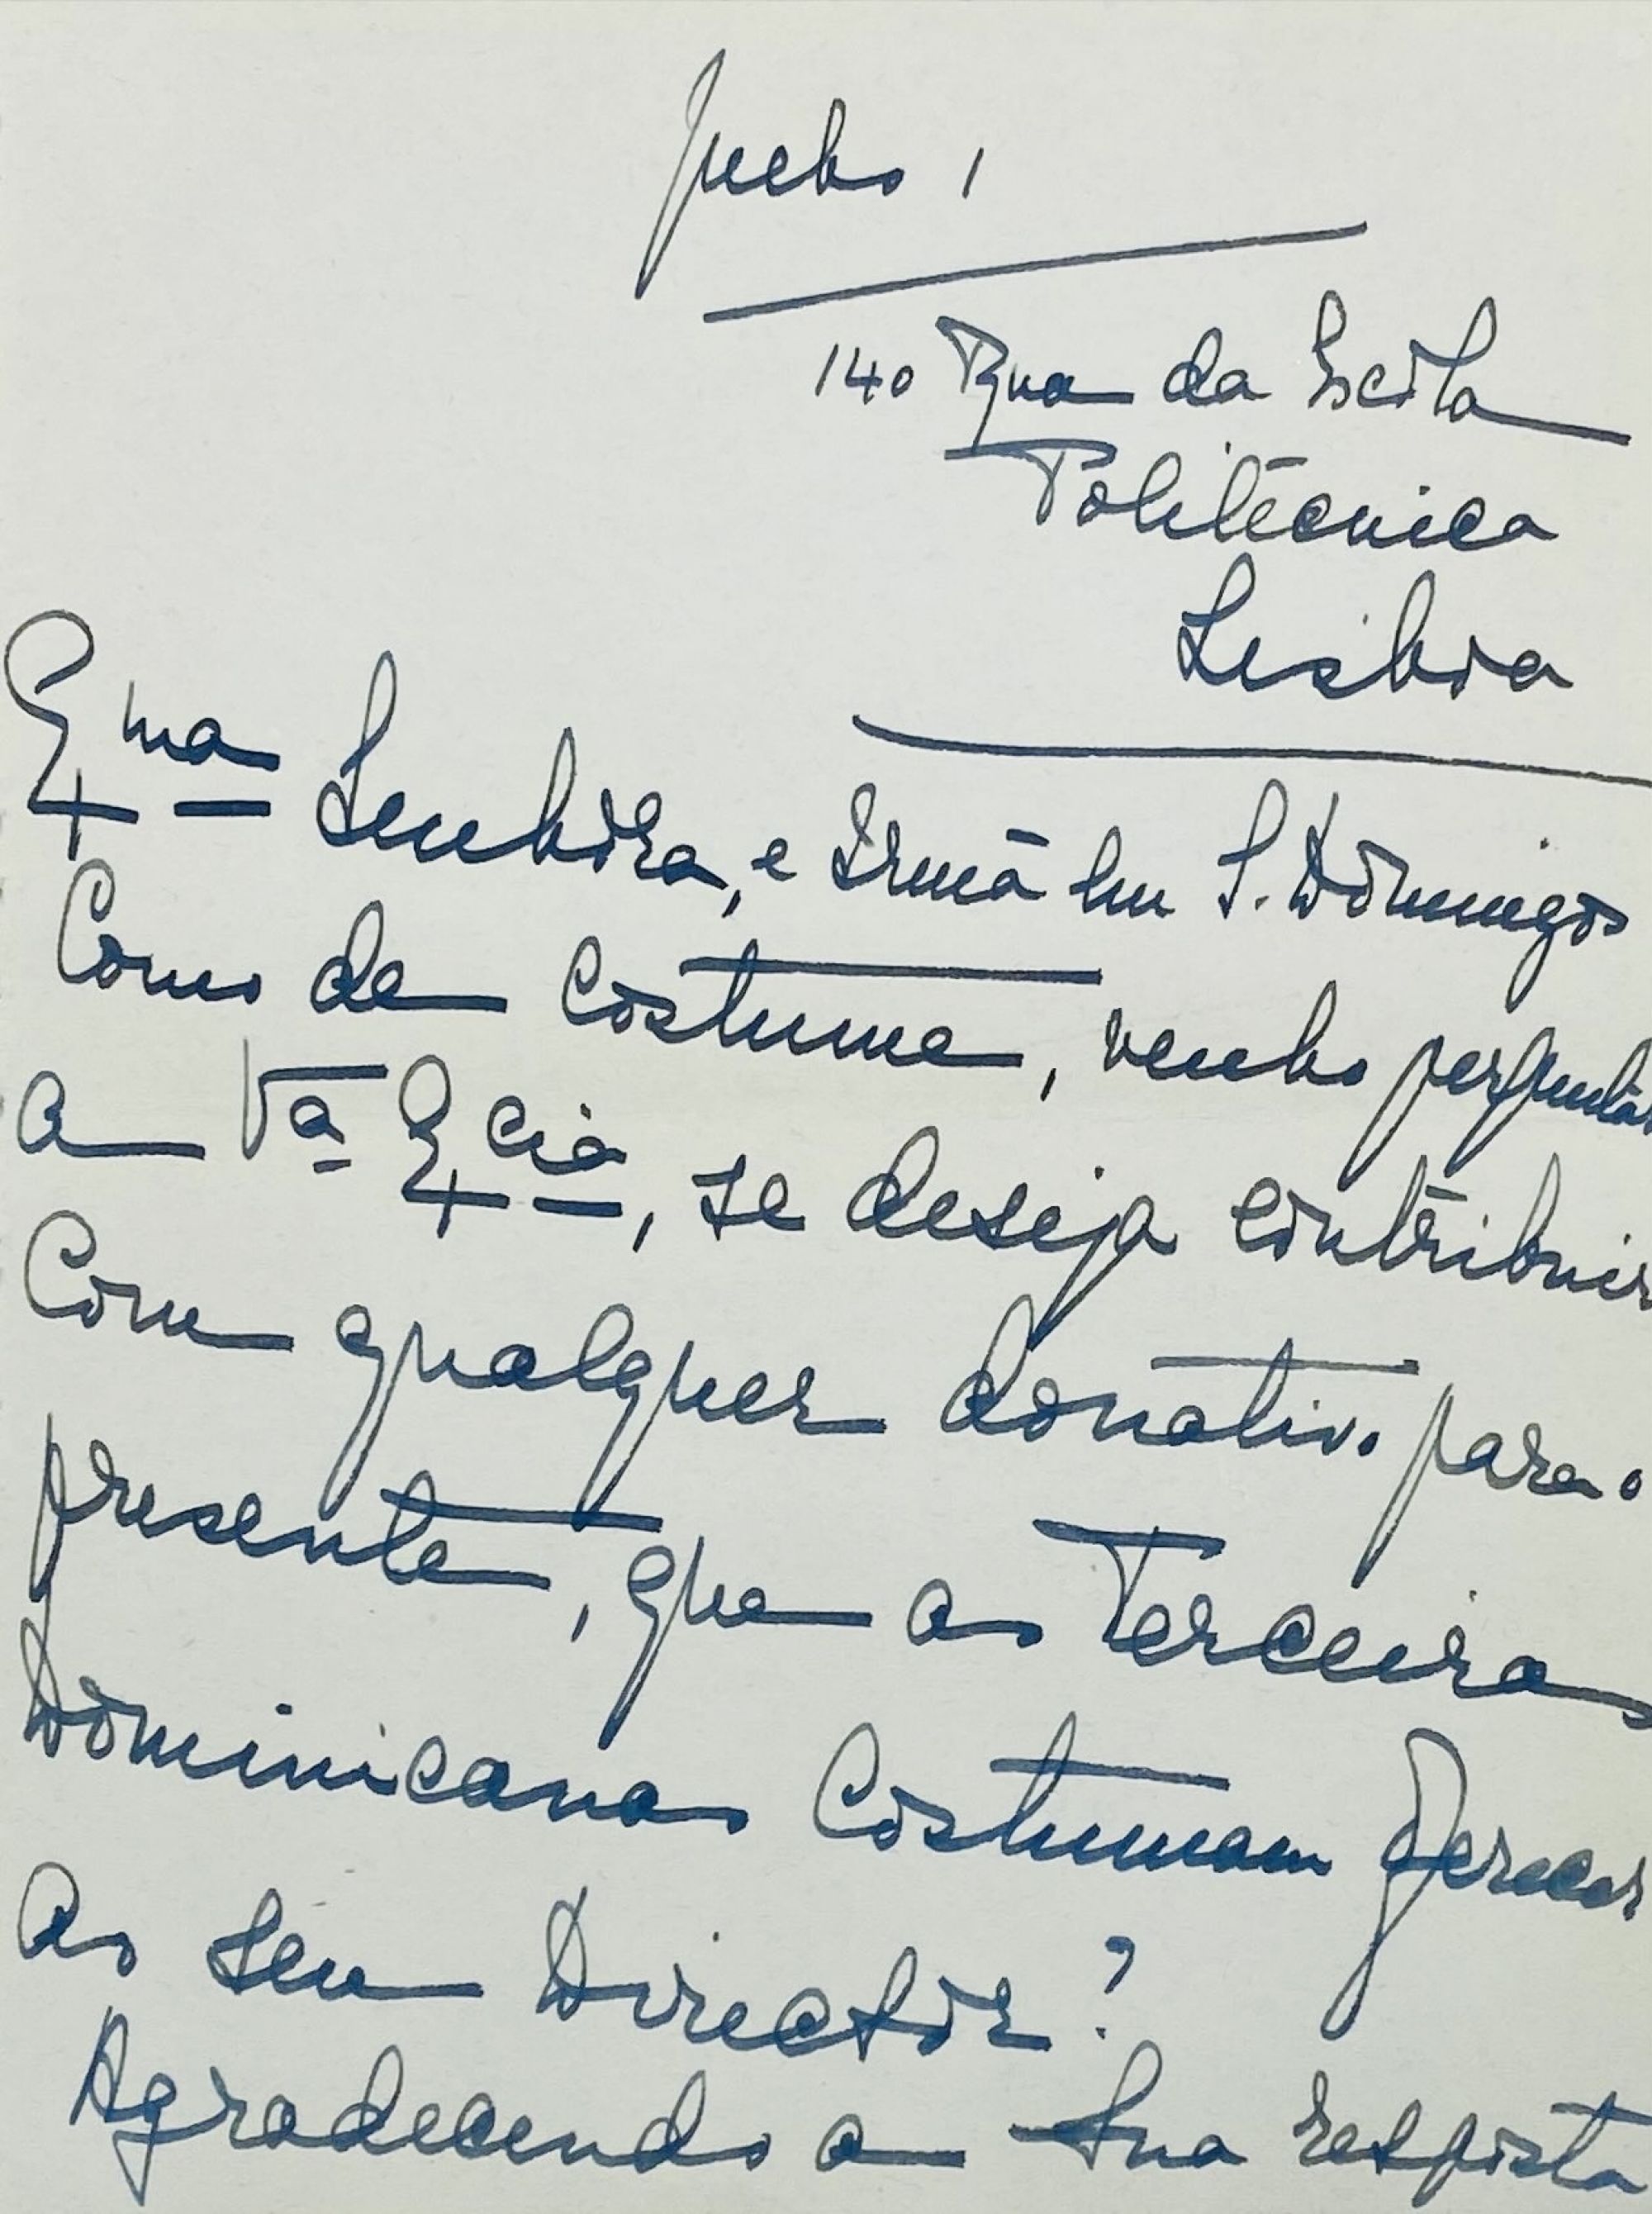 Junho 1
140 Rua da Escola
Politécnica
Lisboa
Exma Senhora, e Irmã em S. Domingos
Como de costume, venho perguntar
a Va Excia, se deseja contribuir
com qualquer donativo para o
presente, que as Terceiras
Dominicanas costumam oferecer
ao seu Director?
Agradecendo a sua resposta